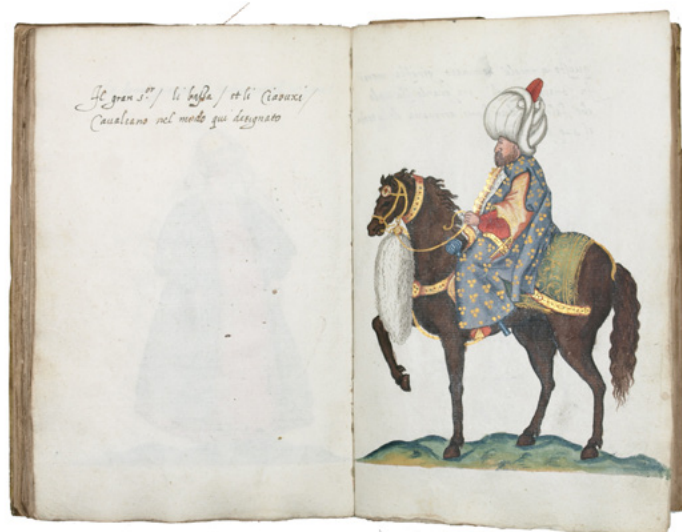 Il gran s.or / li bassa / et li Ciausi /
Caualcano nel modo qui designato